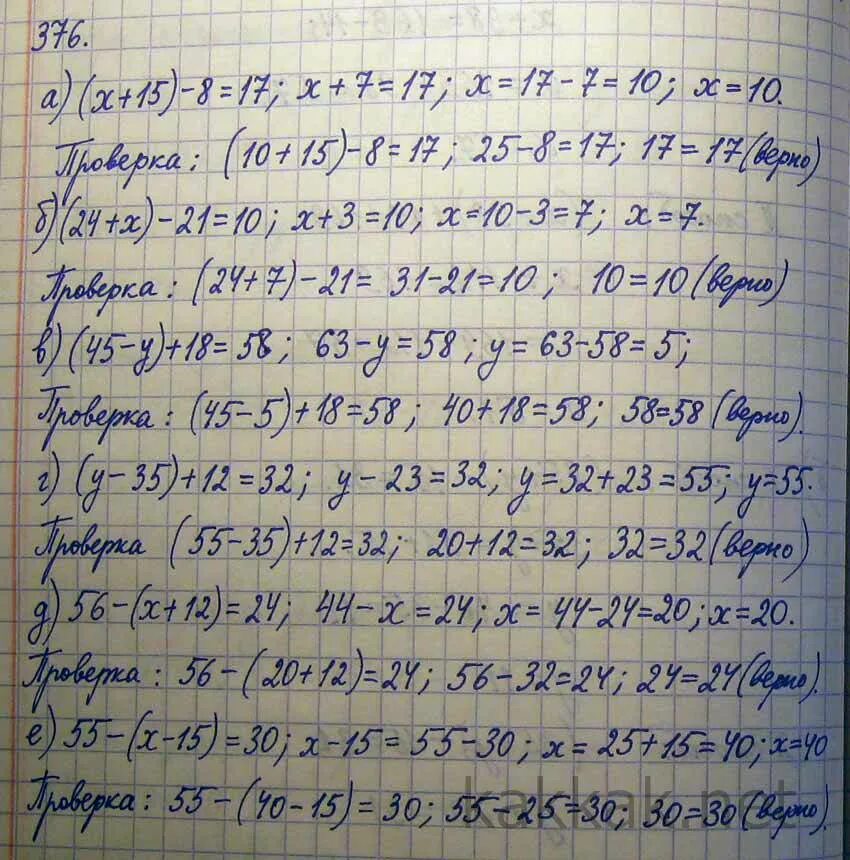 376.
а) (x+15)-8=17; x+7=17; x=17-7=10; x=10.
Проверка: (10+15)-8=17; 25-8=17; 17=17(верно)
б) (24+x)-21=10; x+3=10; x=10-3=7; x=7.
Проверка: (24+7)-21= 31-21=10; 10=10(верно)
в) (45-y)+18=58; 63-y=58; y=63-58=5;
Проверка: (45-5)+18=58; 40+18=58; 58=58 (верно).
г) (y-35)+12=32; y-23=32; y=32+23=55; y=55.
Проверка (55-35)+12=32; 20+12=32; 32=32(верно)
д) 56-(x+12)=24; 44-x=24; x=44-24=20; x=20.
Проверка: 56-(20+12)=24; 56-32=24; 24=24(верно).
е) 55-(x-15)=30; x-15=55-30; x=25+15=40; x=40
Проверка: 55-(40-15)=30; 55-25=30; 30=30(верно).
kakkak.net